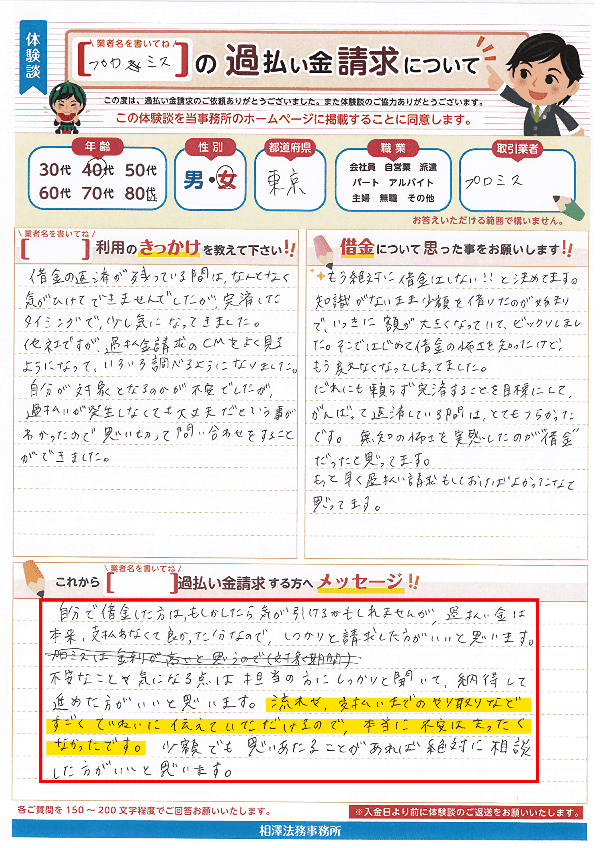 体験談
業者名を書いてね
[プロミス]の過払い金請求について
この度は、過払い金請求のご依頼ありがとうございました。また体験談のご協力ありがとうございます。
この体験談を当事務所のホームページに掲載することに同意します。
年齢
30代 40代 50代
60代 70代 80代以上
性別
男・女
都道府県
東京
職業
会社員 自営業 派遣
パート アルバイト
主婦 無職 その他
取引業者
プロミス
お答えいただける範囲で構いません。
業者名を書いてね
[ ]利用のきっかけを教えて下さい!!
借金の返済が残っている間は、なんとなく
気がひけてできませんでしたが、完済した
タイミングで、少し気になってきました。
他社ですが、過払金請求のCMをよく見る
ようになって、いろいろ調べるようになりました。
自分が対象となるのかが不安でしたが、
過払いが発生しなくても大丈夫だという事が
わかったので思い切って問い合わせをすること
ができました。
借金について思った事をお願いします!!
もう絶対に借金はしない!!と決めてます。
知識がないまま少額を借りたのが始まり
で、いっきに額が大きくなっていて、ビックリしまし
た。そこではじめて借金の怖さを知ったけど、
もう遅くなってしまってました。
だれにも頼らず完済することを目標にして、
がんばって返済している間は、とてもつらかった
です。無知の怖さを実感したのが"借金"
だったと思ってます。
もっと早く過払い請求もしておけばよかったなと
思ってます。
業者名を書いてね
これから[ ]過払い金請求する方へメッセージ!!
自分で借金した方は、もしかしたら気が引けるかもしれませんが、過払い金は
本来、支払わなくて良かった分なので、しっかりと請求した方がいいと思います。
プロミスは金利が高いと思うので(対象期間)
不安なことや気になる点は担当の方にしっかりと聞いて、納得して
進めた方がいいと思います。流れや、支払いまでのやり取りなど
すごくていねいに伝えていただけるので、本当に不安はまったく
なかったです。少額でも思いあたることがあれば絶対に相談
した方がいいと思います。
各ご質問を150～200文字程度でご回答お願いいたします。
※入金日より前に体験談のご返送をお願いいたします。
相澤法務事務所